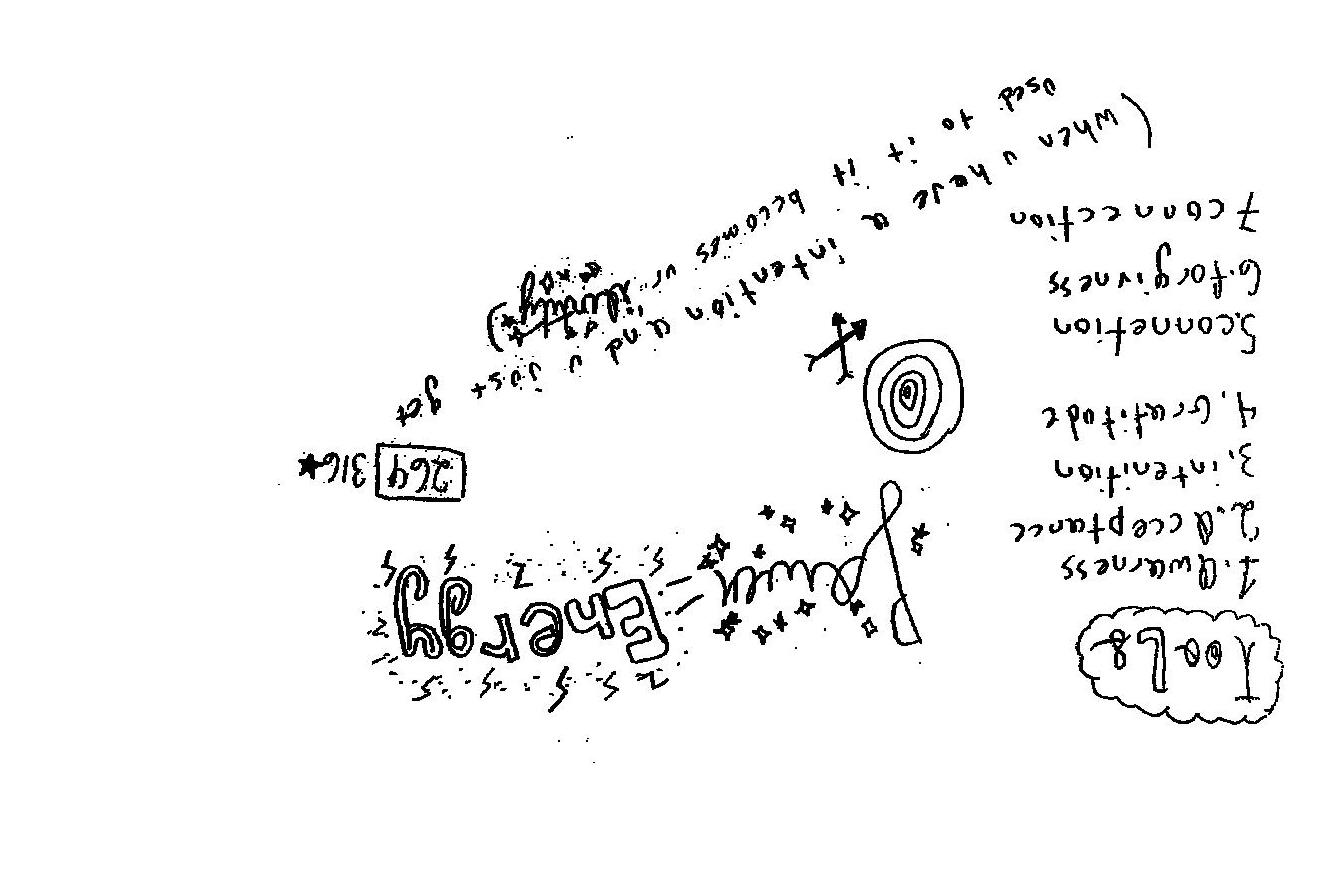 TooLs
1. Awarness
2. Acceptance
3. intenition
4. Gratitude
5. connetion
6. forgivness
7 connection
(when u have a intention and u just get
used to it it becomes ur
= Energy
264 316